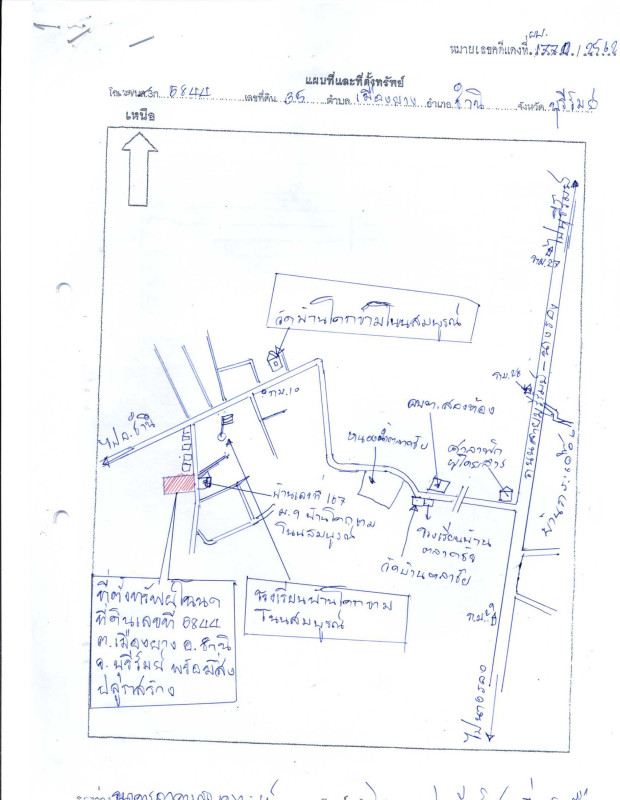 ผบ.
หมายเลขคดีแดงที่
แผนที่และที่ตั้งทรัพย์
5844 เลขที่ดิน 35 ตำบล เมืองยาง อำเภอ ชำนิ จังหวัด บุรีรัมย์
เหนือ
ไปบุรีรัมย์
กม.27
วัดบ้านโคกขามโนนสมบูรณ์
ถนนสายบุรีรัมย์-นางรอง
กม.28
กม.10
อบต.
หนองน้ำตลาดชัย
ศาลาพัก
ผู้โดยสาร
ไป อ.ชำนิ
บ้านเลขที่ 167
ม.9 บ้านโคกขาม
โนนสมบูรณ์
โรงเรียนบ้าน
ตลาดชัย
วัดบ้านตลาดชัย
ที่ตั้งทรัพย์โฉนด
ที่ดินเลขที่ 5844
ต.เมืองยาง อ.ชำนิ
จ.บุรีรัมย์ พร้อมสิ่ง
ปลูกสร้าง
โรงเรียนบ้านโคกขาม
โนนสมบูรณ์
ไปนางรอง